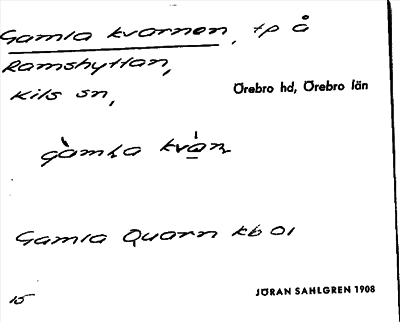 Gamla kvarnen, tp å
Ramshyttan,
Kils sn,
Örebro hd, Örebro län
gàmla kván
Gamla Quarn kb 01
15
JÖRAN SAHLGREN 1908